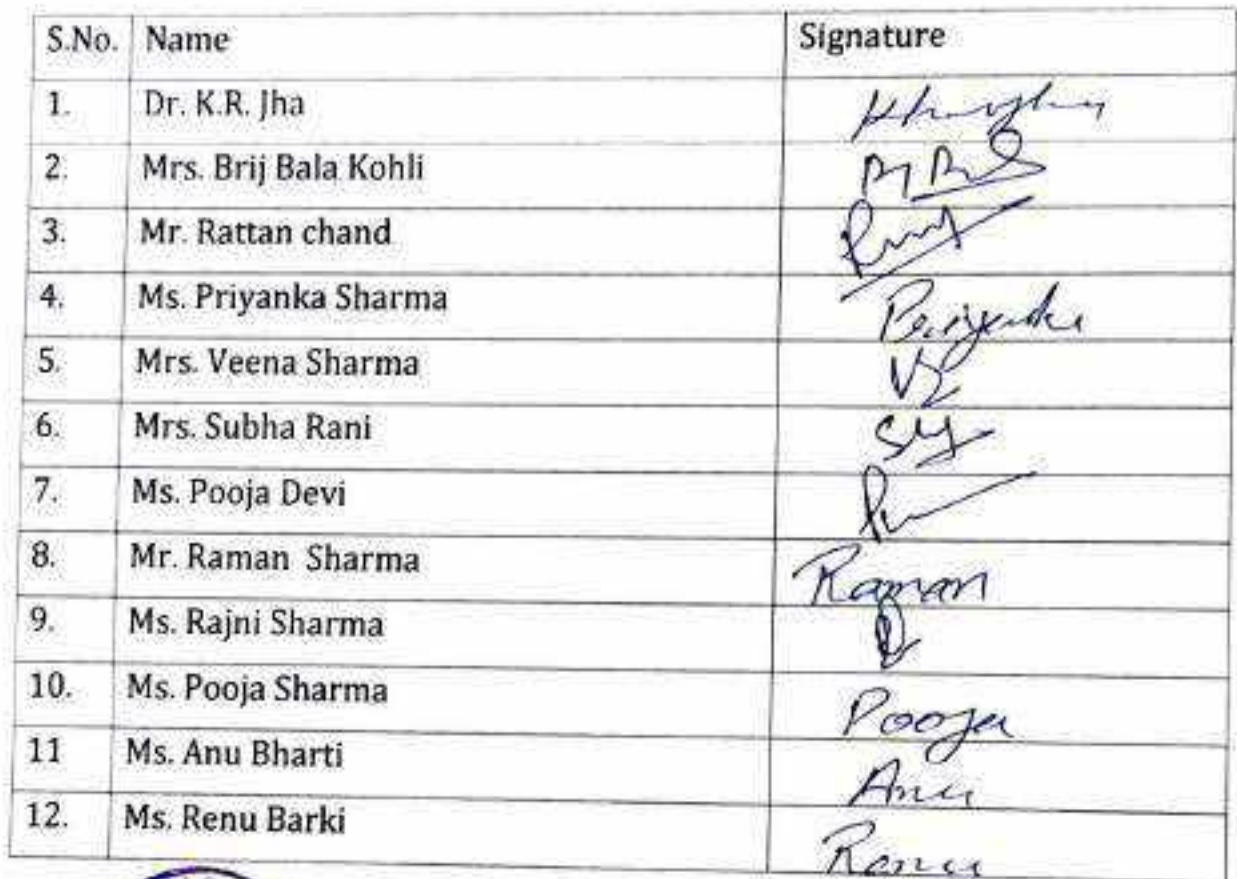 S.No. Name Signature
1. Dr. K.R. Jha
2. Mrs. Brij Bala Kohli
3. Mr. Rattan chand
4. Ms. Priyanka Sharma
5. Mrs. Veena Sharma
6. Mrs. Subha Rani
7. Ms. Pooja Devi
8. Mr. Raman Sharma Raman
9. Ms. Rajni Sharma
10. Ms. Pooja Sharma Pooja
11 Ms. Anu Bharti Anu
12. Ms. Renu Barki Renu